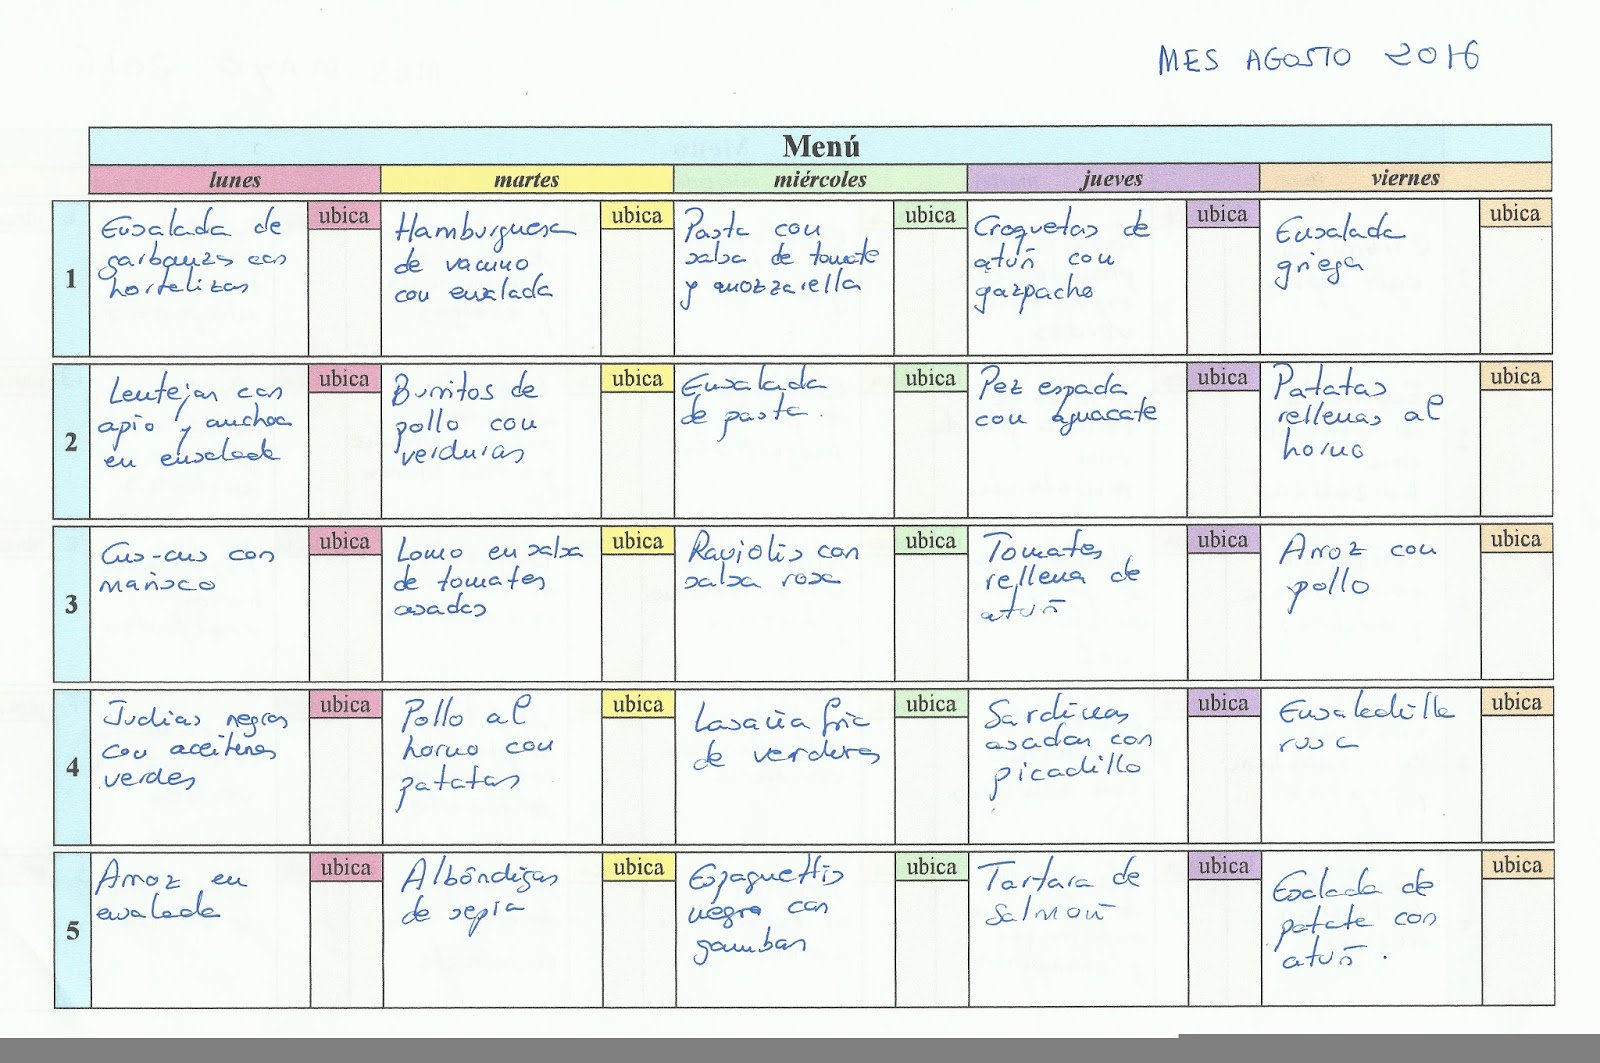 MES AGOSTO 2016
Menú
lunes martes miércoles jueves viernes
1
Ensalada de
garbanzos con
hortelizas
ubica
Hamburguesa
de vacuno
con ensalada
ubica
Pasta con
salsa de tomate
y mozzarella
ubica
Croquetas de
atún con
gazpacho
ubica
Ensalada
griega
ubica
2
Lentejas con
apio y anchoa
en ensalada
ubica
Burritos de
pollo con
verduras
ubica
Ensalada
de pasta.
ubica
Pez espada
con aguacate
ubica
Patatas
rellenas al
horno
ubica
3
Cus-cus con
marisco
ubica
Lomo en salsa
de tomates
asados
ubica
Raviolis con
salsa rosa
ubica
Tomates
rellena de
atún
ubica
Arroz con
pollo
ubica
4
Judias negras
con aceitunas
verdes
ubica
Pollo al
horno con
patatas
ubica
Lasaña fria
de verduras
ubica
Sardinas
asadas con
picadillo
ubica
Ensaladilla
rusa
ubica
5
Arroz en
ensalada
ubica
Albóndigas
de sepia
ubica
Espaguettis
negro con
gambas
ubica
Tartara de
salmón
ubica
Esalada de
patata con
atún.
ubica